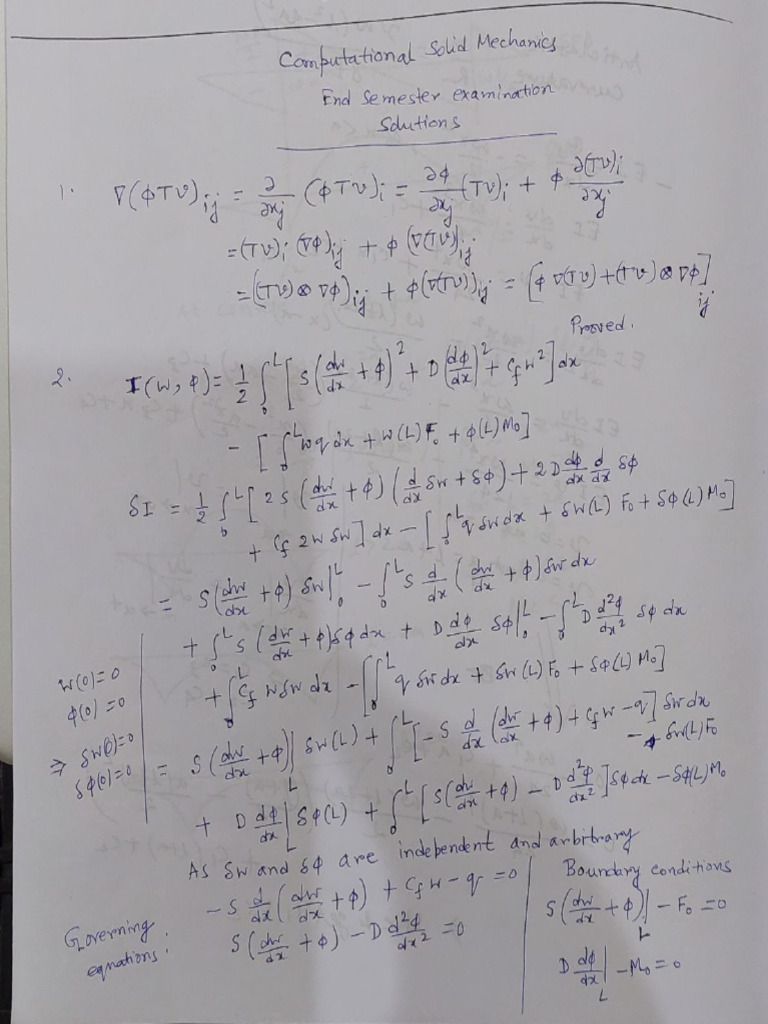 Computational Solid Mechanics
End Semester examination
Solutions
1. ∇(φTv)ij = ∂/∂xj (φTv)i = ∂φ/∂xj (Tv)i + φ ∂(Tv)i/∂xj
= (Tv)i (∇φ)ij + φ(∇(Tv))ij
= ((Tv)⊗∇φ)ij + φ(∇(Tv))ij = [φ∇(Tv)+(Tv)⊗∇φ]ij
Proved.
2. I(w, φ) = 1/2 ∫₀ᴸ [S(dw/dx + φ)² + D(dφ/dx)² + Cf w²] dx
- [∫₀ᴸ wq dx + w(L)F₀ + φ(L)M₀]
δI = 1/2 ∫₀ᴸ [2S(dw/dx + φ)(d/dx δw + δφ) + 2D dφ/dx d/dx δφ
+ Cf 2w δw] dx - [∫₀ᴸ q δw dx + δw(L) F₀ + δφ(L) M₀]
= S(dw/dx + φ) δw|₀ᴸ - ∫₀ᴸ S d/dx (dw/dx + φ) δw dx
+ ∫₀ᴸ S(dw/dx + φ)δφ dx + D dφ/dx δφ|₀ᴸ - ∫₀ᴸ D d²φ/dx² δφ dx
w(0)=0
φ(0)=0
⇒ δw(0)=0
δφ(0)=0
+ ∫₀ᴸ Cf w δw dx - [∫₀ᴸ q δw dx + δw(L) F₀ + δφ(L) M₀]
= S(dw/dx + φ)|L δw(L) + ∫₀ᴸ [-S d/dx (dw/dx + φ) + Cf w - q] δw dx
- δw(L)F₀
+ D dφ/dx|L δφ(L) + ∫₀ᴸ [S(dw/dx + φ) - D d²φ/dx²]δφ dx - δφ(L)M₀
As δw and δφ are independent and arbitrary
Governing equations:
-S d/dx (dw/dx + φ) + Cf w - q = 0
S(dw/dx + φ) - D d²φ/dx² = 0
Boundary conditions
S(dw/dx + φ)|L - F₀ = 0
D dφ/dx|L - M₀ = 0